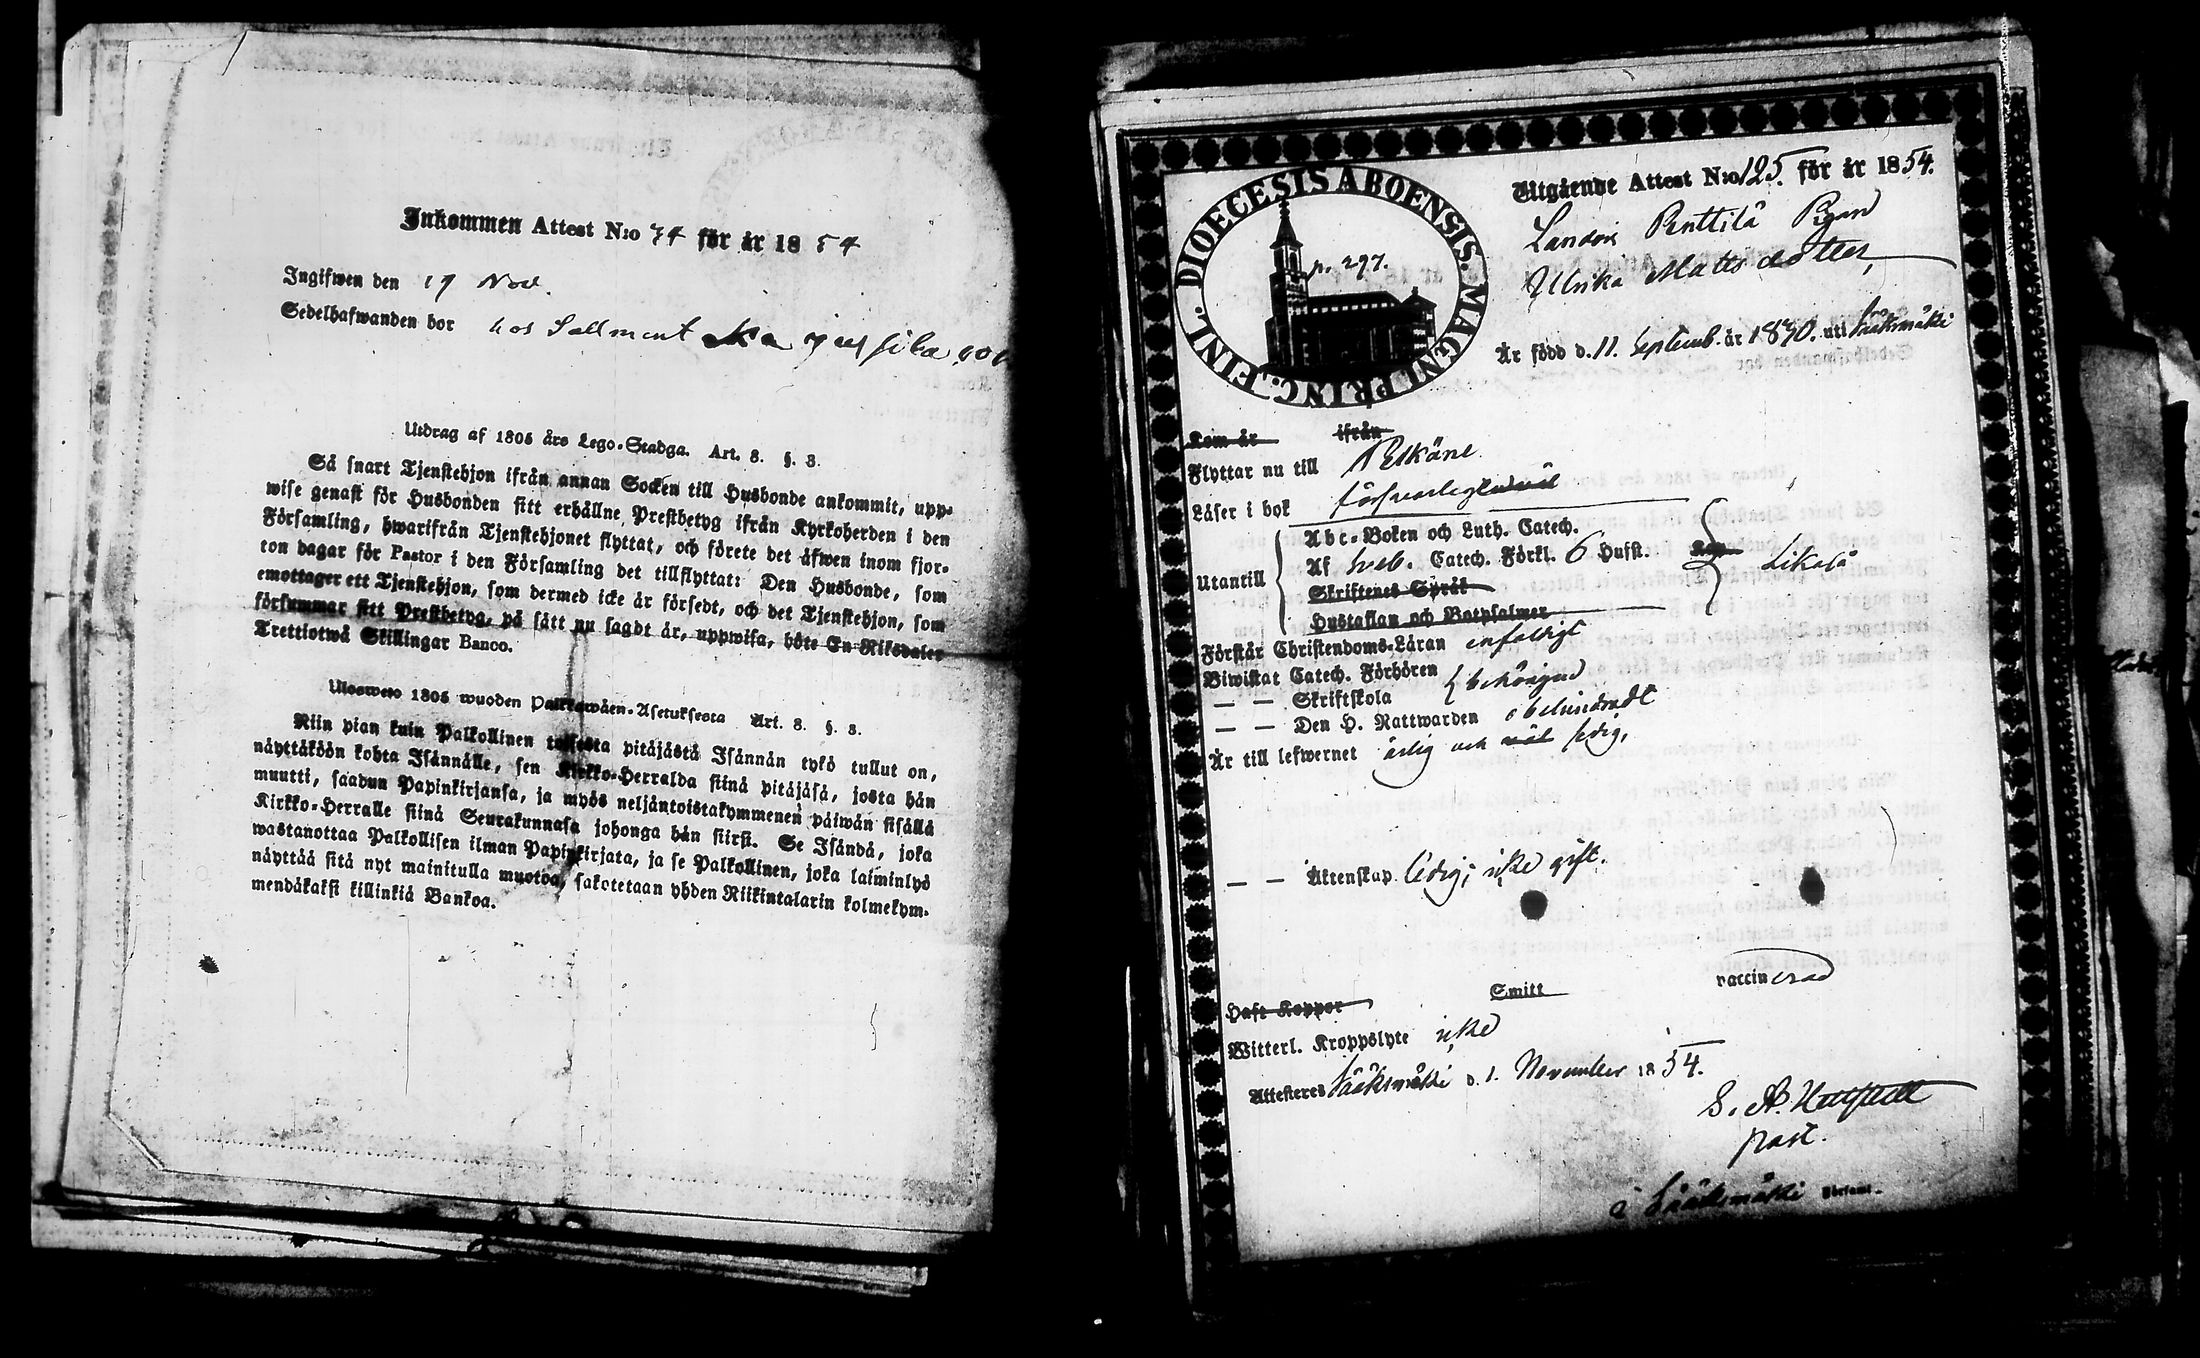 Inkommen Attest N:o 74 för år 1854
Ingifwen den 19 Nov.
Sedelhafwanden bor hos Sallment
Utdrag af 1805 års Lego-Stadga. Art. 8. §. 3.
Så snart Tjenstehjon ifrån annan Socken till Husbonde ankommit, upp-
wise genast för Husbonden sitt erhållne Prestbetyg ifrån Kyrkoherden i den
Församling, hwarifrån Tjenstehjonet flyttat, och förete det äfwen inom fjor-
ton dagar för Pastor i den Församling det tillflyttat: Den Husbonde, som
emottager ett Tjenstehjon, som dermed icke är försedt, och det Tjenstehjon, som
försummar sitt Prestbetyg, på sätt nu sagdt är, uppwisa, böte En Riksdaler
Trettiotwå Skillingar Banco.
Ulosweto 1805 wuoden Palkkawäen-Asetuksesta Art. 8. §. 3.
Niin pian kuin Palkollinen toisesta pitäjästä Isännän tykö tullut on,
näyttäköön kohta Isännälle, sen Kirkko-Herralda siinä pitäjäsä, josta hän
muutti, saadun Papinkirjansa, ja myös neljäntoistakymmenen päiwän sisällä
Kirkko-Herralle siinä Seurakunnasa johonga hän siirsi. Se Isändä, joka
wastanottaa Palkollisen ilman Papinkirjata, ja se Palkollinen, joka laiminlyö
näyttää sitä nyt mainitulla muotoa, sakotetaan yhden Riikintalarin kolmekym-
mendäkaksi killinkiä Bankoa.
DIOECESIS ABOENSIS. MAGNI PRINC. FINL.
p. 297.
Utgående Attest N:o 125. för år 1854.
Penttilä
Ulrika Matts dotter,
Är född d. 11. Septemb. år 1830. uti Sääksmäki
Kom år ifrån
Flyttar nu till Pelkäne
Läser i bok försvarligt
Utantill
Abc-Boken och Luth. Catech.
Af Sveb. Catech. Förkl. 6 Hufst.
Skriftenes Språk
Hustaflan och Botpsalmer
Likaså
Förstår Christendoms-Läran enfaldigt
Biwistat Catech. Förhören
— — Skriftskola behörigen
— — Den H. Nattwarden obehindradt
Är till lefwernet ärlig och ledig,
— — Äktenskap ledig; icke gift.
Haft Koppor Smitt vaccinerad
Witterl. Kroppslyte icke
Attesteres Sääksmäki d. 1. November 1854.
past.
i Sääksmäki Församl.